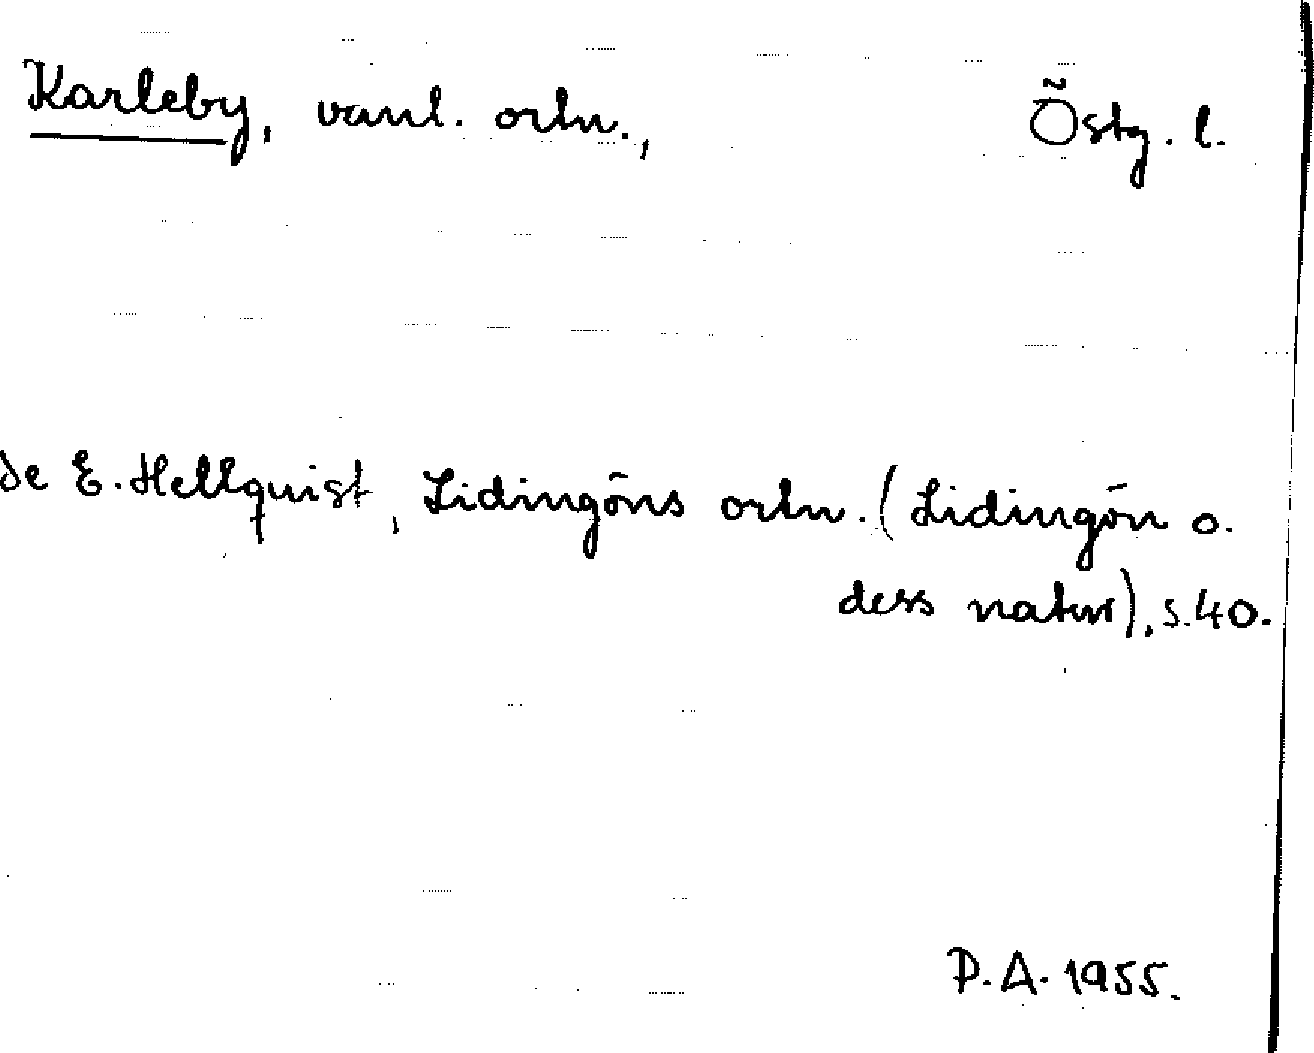 Karleby, vanl. ortn., Östg. l.
Se E. Hellquist, Lidingöns ortn. (Lidingön o.
dess natur), s. 40.
P. A. 1955.